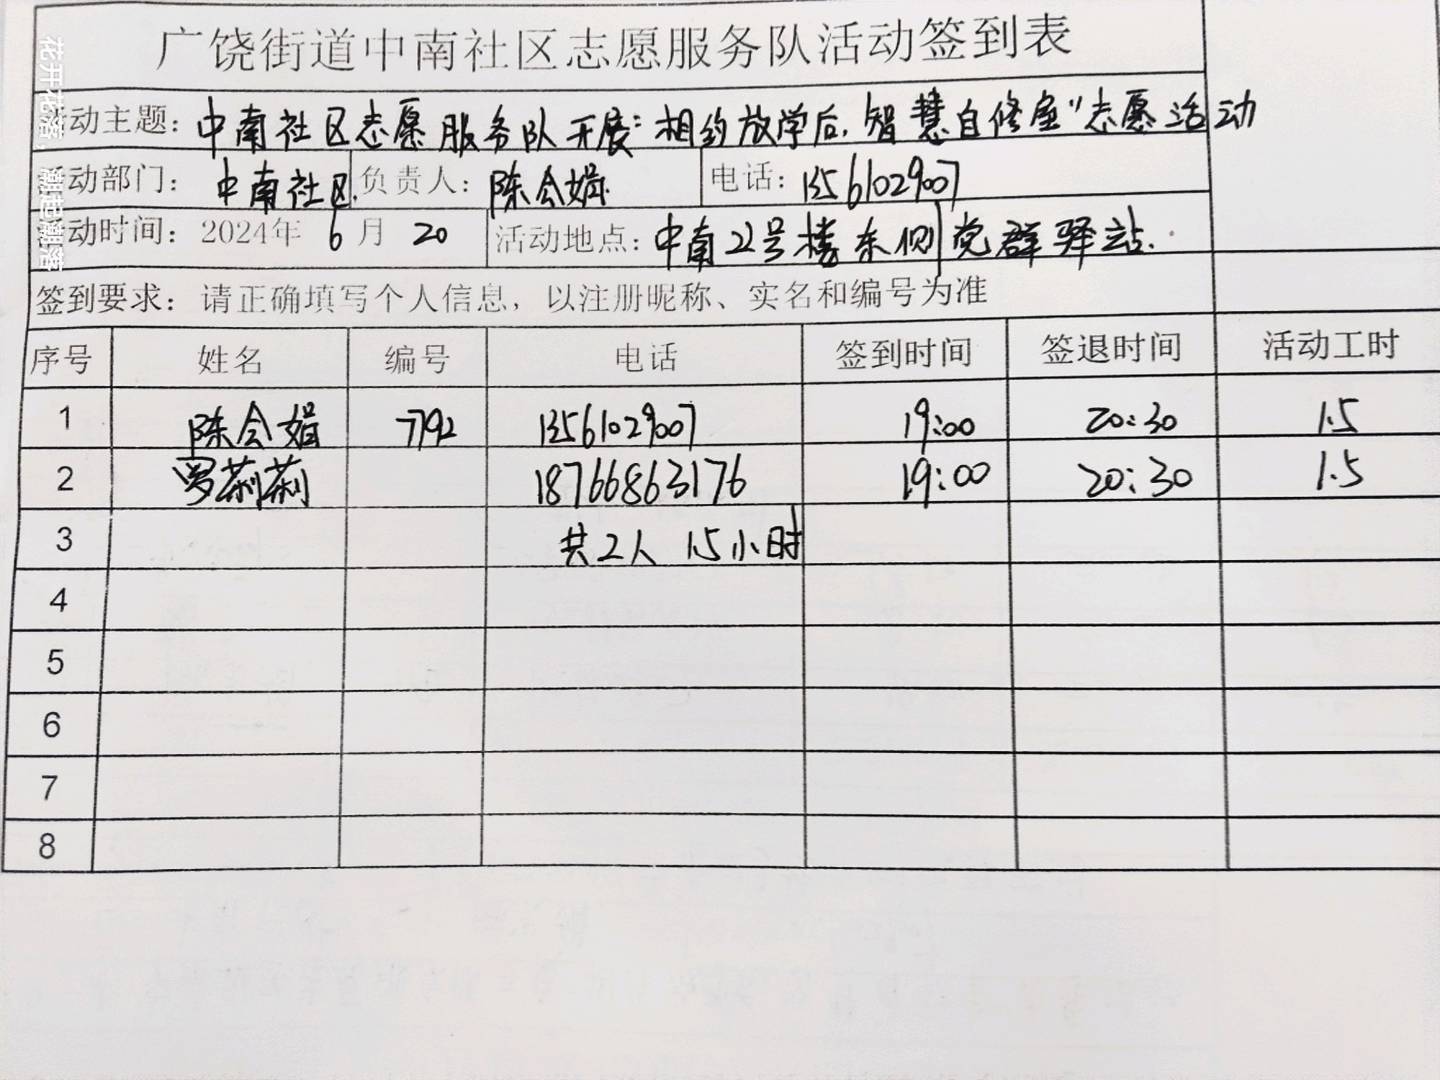 广饶街道中南社区志愿服务队活动签到表
活动主题：中南社区志愿服务队开展“相约放学后，智慧自修室”志愿活动
活动部门：中南社区 负责人：陈会娟 电话：13561029007
活动时间：2024年 6 月 20 活动地点：中南22号楼东侧党群驿站.
签到要求：请正确填写个人信息，以注册昵称、实名和编号为准
序号 姓名 编号 电话 签到时间 签退时间 活动工时
1 陈会娟 7792 13561029007 19:00 20:30 1.5
2 罗莉莉 18766863176 19:00 20:30 1.5
3 共2人 1.5小时
4
5
6
7
8
花开花落，潮起潮落